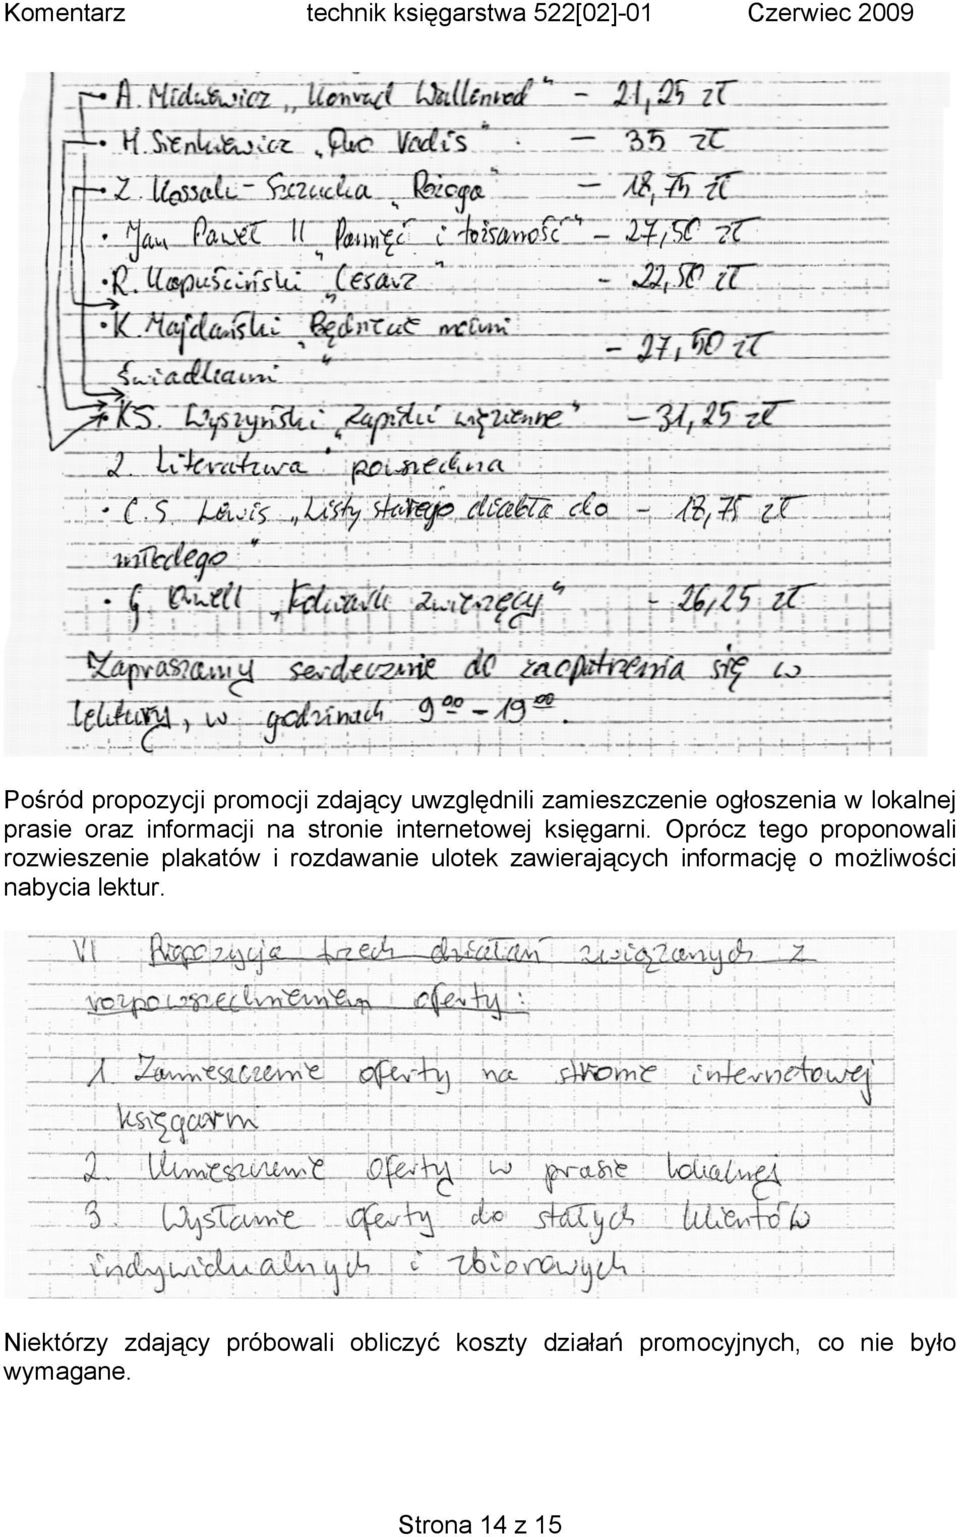 Komentarz technik księgarstwa 522[02]-01 Czerwiec 2009
• A. Mickiewicz „Konrad Wallenrod" - 21,25 zł
• H. Sienkiewicz „Quo Vadis" - 35 zł
• Z. Kossak - Szczucka „Pożoga" - 18,75 zł
• Jan Paweł II „Pamięć i tożsamość" - 27,50 zł
• R. Kapuściński „Cesarz" - 22,50 zł
• K. Majdański „Będziecie moimi
świadkami" - 27,50 zł
• KS. Wyszyński „Zapiski więzienne" - 31,25 zł
2. Literatura powszechna
• C.S. Lewis „Listy starego diabła do - 18,75 zł
młodego"
• G. Orwell „Folwark zwierzęcy" - 26,25 zł
Zapraszamy serdecznie do zaopatrzenia się w
lektury, w godzinach 9⁰⁰ - 19⁰⁰.
Pośród propozycji promocji zdający uwzględnili zamieszczenie ogłoszenia w lokalnej
prasie oraz informacji na stronie internetowej księgarni. Oprócz tego proponowali
rozwieszenie plakatów i rozdawanie ulotek zawierających informację o możliwości
nabycia lektur.
VI Propozycja trzech działań związanych z
rozpowszechnieniem oferty:
1. Zamieszczenie oferty na stronie internetowej
księgarni
2. Umieszczenie oferty w prasie lokalnej
3. Wysłanie oferty do stałych klientów
indywidualnych i zbiorowych
Niektórzy zdający próbowali obliczyć koszty działań promocyjnych, co nie było
wymagane.
Strona 14 z 15